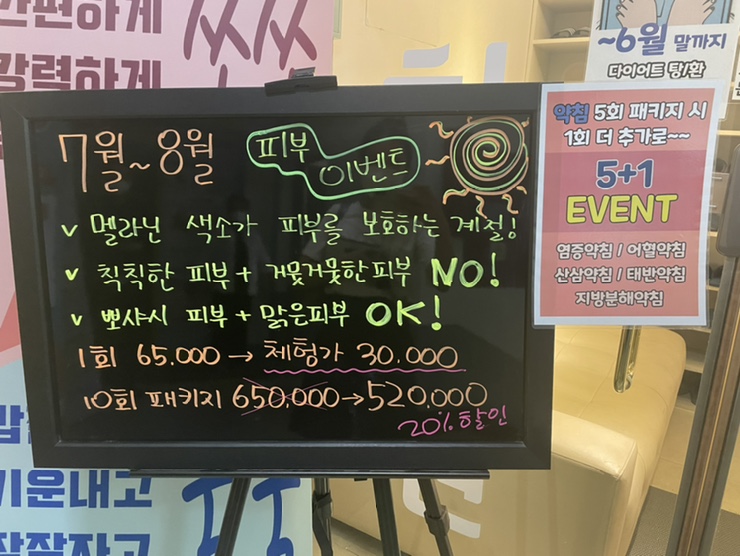 간편하게
강력하게
쏙쏙
~6월 말까지
다이어트 탕/환
7월~8월
피부
이벤트
v 멜라닌 색소가 피부를 보호하는 계절!
v 칙칙한 피부 + 거뭇거뭇한 피부 NO!
v 뽀샤시 피부 + 맑은피부 OK!
1회 65.000 → 체험가 30.000
10회 패키지 650.000 → 520.000
20% 할인
약침 5회 패키지 시
1회 더 추가로~~
5+1
EVENT
염증약침 / 어혈약침
산삼약침 / 태반약침
지방분해약침
기운내고
잘잘자고